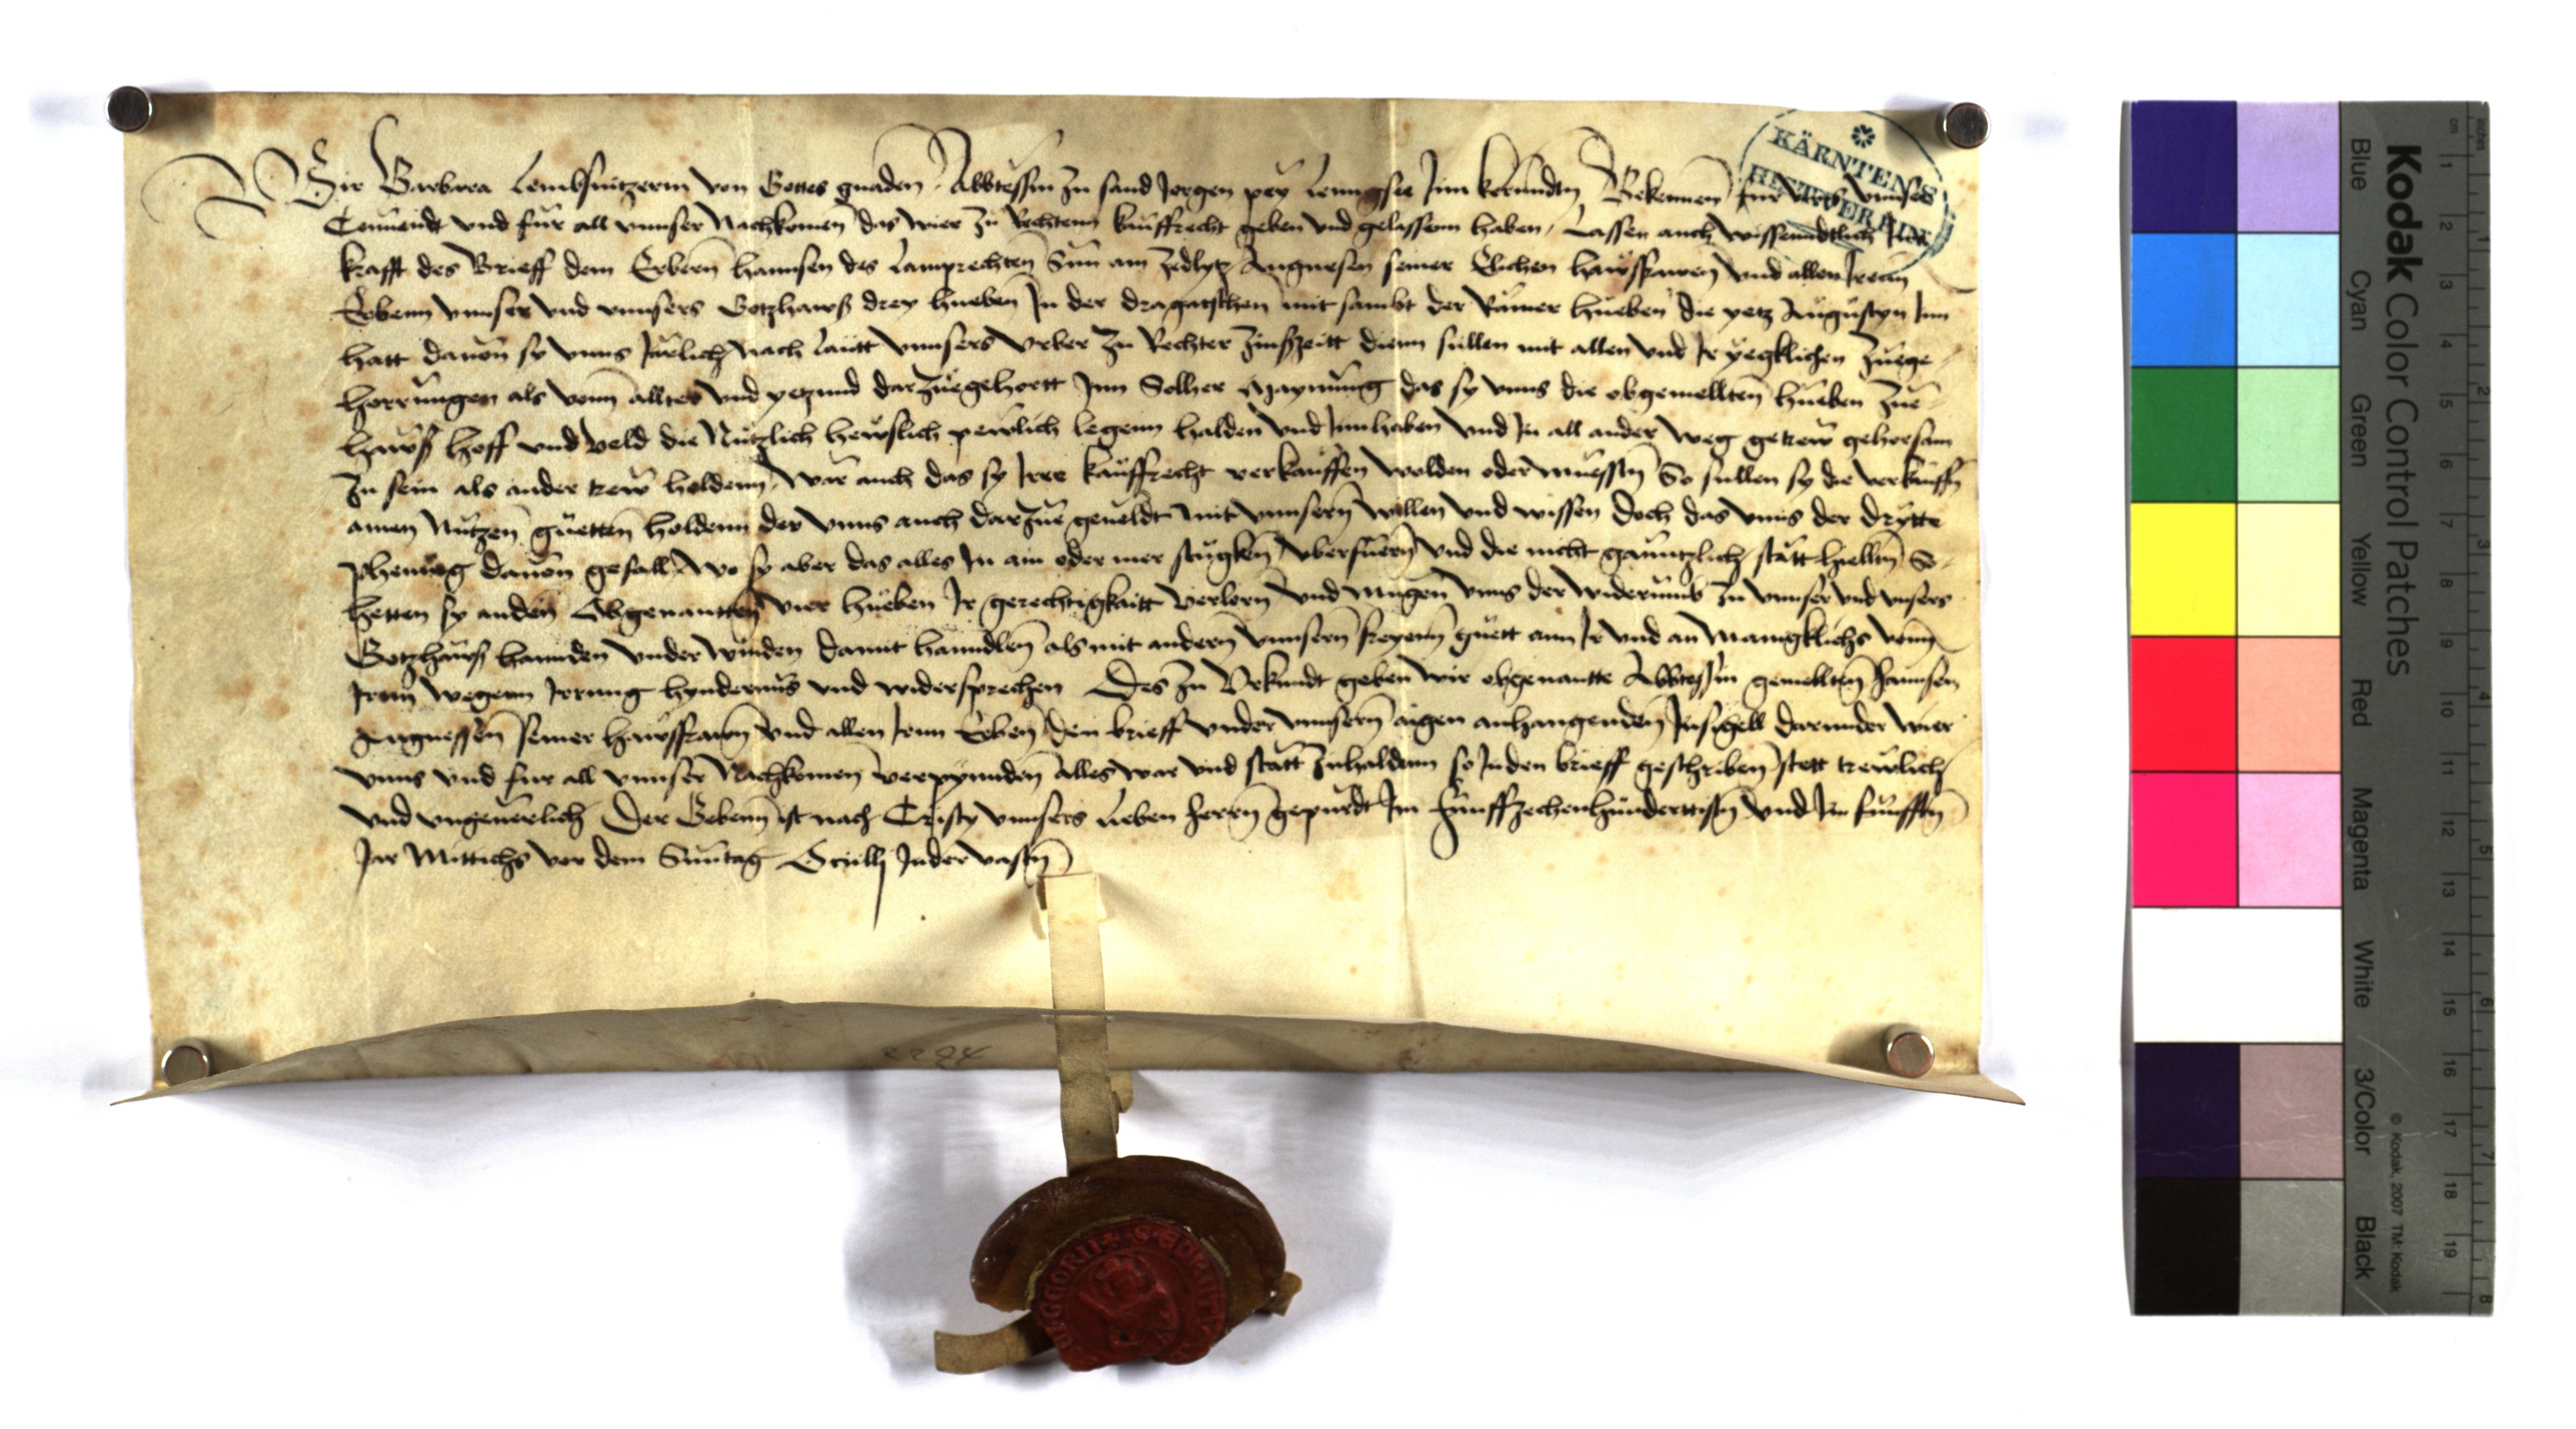 Wir Barbara von Gottes gnaden Abbtessin zu sand Jorgen pey Lenngsee Inn kerundtn Bekennen fur unns unnser
Conuendt vnd fur all vnnser Nachkomen das wier zu Rechtem kauffrecht geben vnd gelassenn haben, Lassen auch wissenndtlich
krafft des Brieff dem Erbern hannsen des Lamprechten Sun am Zedlytz Anngnesen seiner Elichen hawsfrawen vnd allen Irenn
Erbenn vnnser vnd vnnsers Gotzhawss drey hueben In der dragatschen mit sambt der hueben die yetz Augustyn Inn
hatt dauon sy vnns Jarlich nach lautt vnnsers Vrber zu Rechter Zinsszeitt dienn sullen mit allen vnd Ir yegklichen zuege-
horrungen als vonn allter vnd yetzund darzuegehortt Inn Solher Maynung das sy vnns die obgemellten hueben zue
hawss hoff vnd veld die Nutzlich hewslich pewlich legenn halden vnd Innhaben vnd In all ander weg getrew gehorsam
zu sein als ander trew holdenn, War auch das sy Irre kauffrecht verkauffen wolden oder muesstn So sullen sy die verkauffn
ainen Nutzen guetten holdenn der vnns auch darzue geueldt mit vnnsern willen vnd wissen doch das vnns der drytte
phening dauon gefall, Wo sy aber das alles In ain oder mer stugken vberfuern vnd die nicht ganntzlich statt hielltn So
hetten sy anden Obgenantten vier hueben Ir gerechtigkaitt verlorn vnd mugen vnns der widerumb zu vnnser vnd vnsers
Gotzhawss hannden vnderwinden damit hanndlen als mit andern vnnsern freyenn guett ann Ir vnd an manigklichs vonn
Irenn wegenn Irrung hyndernus vnd widersprechen Des zu Vrkundt geben wir obgenantte Abbtessin gemelltn Hannsen
Anngnessen seiner hawsfrawn vnd allen Irnn Erben den brieff vnder vnnsern aigen anhangenden Insigell darunder wier
vnns vnd fur all vnnser Nachkomen verpynnden alles war vnd statt zuhaldenn so Inden brieff geschriben stett trewlich
vnd vngeuerlich Der Gebenn ist nach Cristy vnnsers lieben herrn gepurdt Im funffzechenhunderttistn vnd Im funfftn
Jar Mittichs vor dem Sunntag Oculi In der vastn
KÄRNTENS
2284
Kodak Color Control Patches
Blue Cyan Green Yellow Red Magenta White 3/Color Black
© Kodak, 2007 TM: Kodak
inches 1 2 3 4 5 6 7 8
cm 1 2 3 4 5 6 7 8 9 10 11 12 13 14 15 16 17 18 19